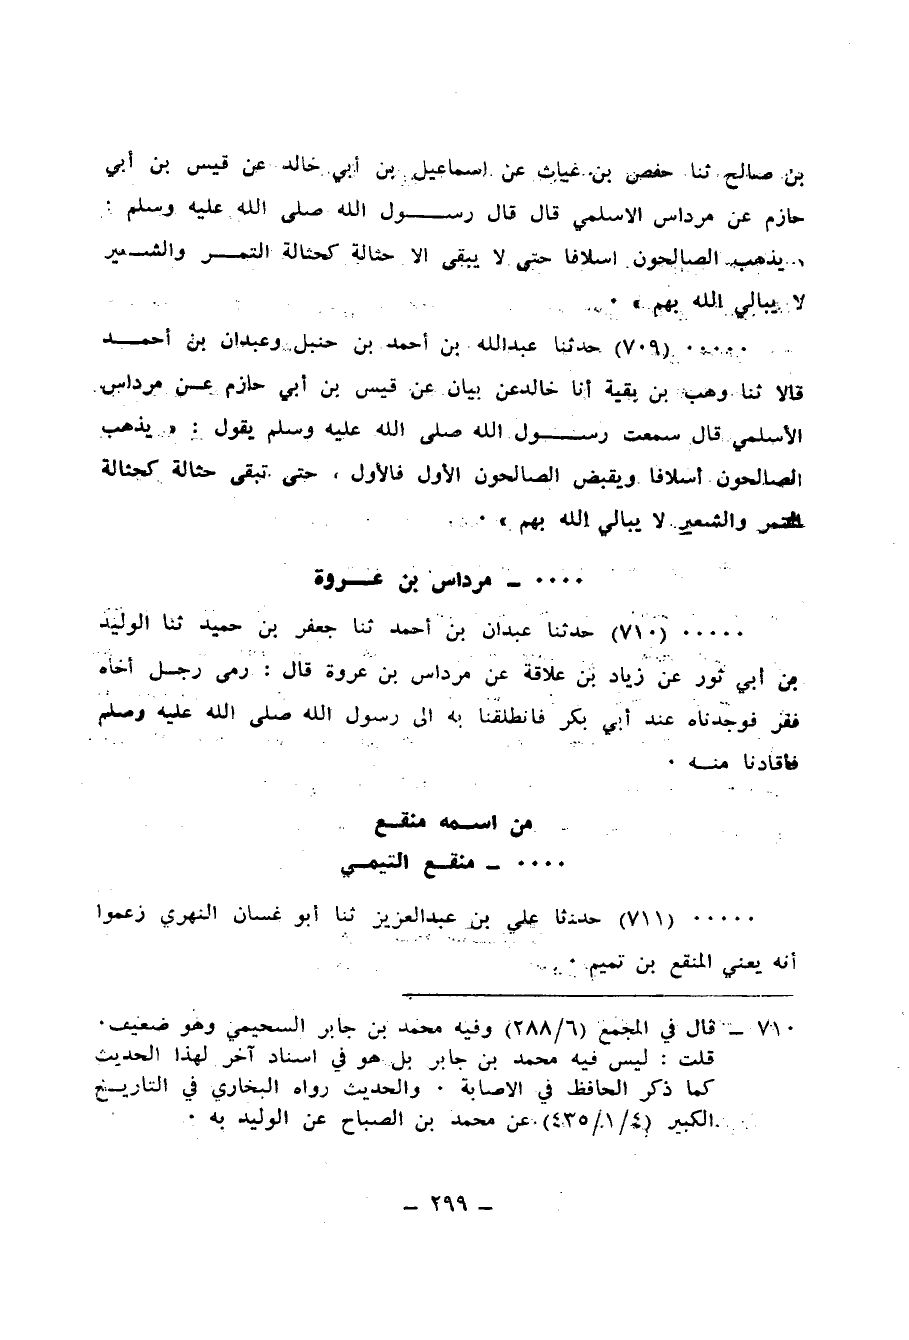 بن صالح ثنا حفص بن غياث عن اسماعيل بن أبي خالد عن قيس بن أبي
حازم عن مرداس الاسلمي قال قال رسول الله صلى الله عليه وسلم :
« يذهب الصالحون اسلافا حتى لا يبقى الا حثالة كحثالة التمر والشعير
لا يبالي الله بهم » ٠
٠٠٠٠٠ (٧٠٩) حدثنا عبدالله بن أحمد بن حنبل وعبدان بن أحمد
قالا ثنا وهب بن بقية أنا خالدعن بيان عن قيس بن أبي حازم عن مرداس
الأسلمي قال سمعت رسول الله صلى الله عليه وسلم يقول : « يذهب
الصالحون أسلافا ويقبض الصالحون الأول فالأول ، حتى تبقى حثالة كحثالة
التمر والشعير لا يبالي الله بهم » ٠
٠٠٠٠ ـ مرداس بن عروة
٠٠٠٠٠ (٧١٠) حدثنا عبدان بن أحمد ثنا جعفر بن حميد ثنا الوليد
بن أبي ثور عن زياد بن علاقة عن مرداس بن عروة قال : رمى رجل أخاه
ففر فوجدناه عند أبي بكر فانطلقنا به الى رسول الله صلى الله عليه وسلم
فاقادنا منه ٠
من اسمه منقع
٠٠٠٠ ـ منقع التيمي
٠٠٠٠٠ (٧١١) حدثنا علي بن عبدالعزيز ثنا أبو غسان النهري زعموا
أنه يعني المنقع بن تميم ٠
٧١٠ ـ قال في المجمع (٢٨٨/٦) وفيه محمد بن جابر السحيمي وهو ضعيف٠
قلت : ليس فيه محمد بن جابر بل هو في اسناد آخر لهذا الحديث
كما ذكر الحافظ في الاصابة ٠ والحديث رواه البخاري في التاريخ
الكبير (٤٣٥/١/٤) عن محمد بن الصباح عن الوليد به ٠
ـ ٢٩٩ ـ